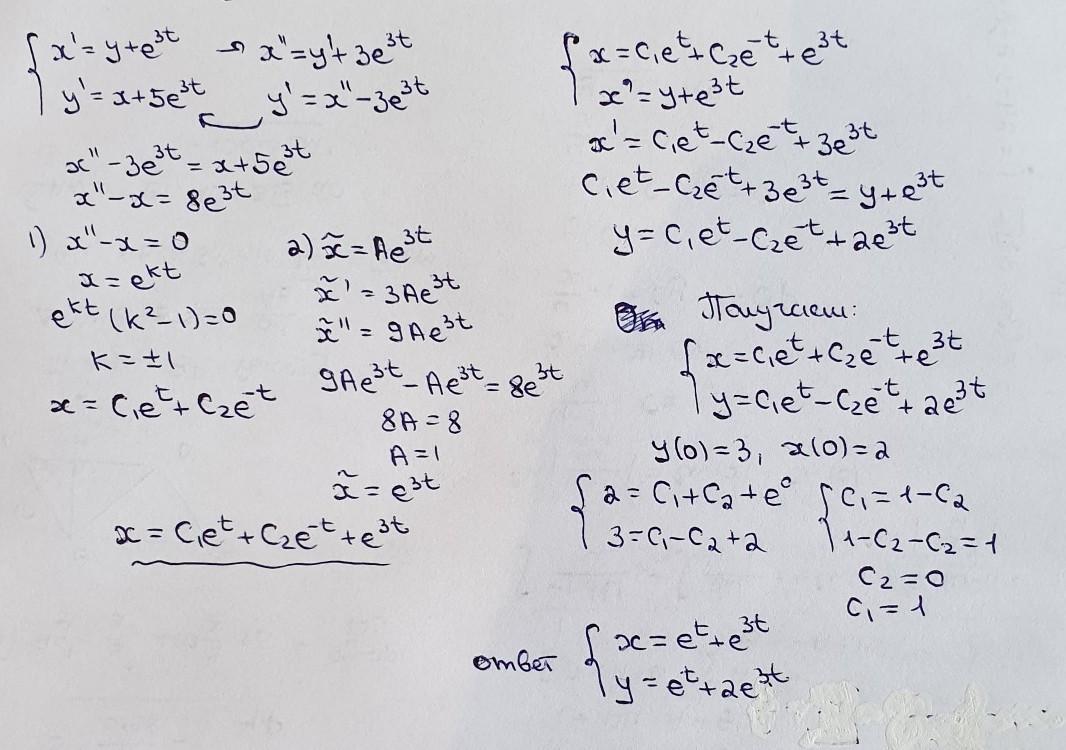 x' = y + e^{3t} → x'' = y' + 3e^{3t}
y' = x + 5e^{3t} y' = x'' - 3e^{3t}
x'' - 3e^{3t} = x + 5e^{3t}
x'' - x = 8e^{3t}
1) x'' - x = 0
x = e^{kt}
e^{kt} (k² - 1) = 0
k = ±1
x = C₁e^t + C₂e^{-t}
2) x̃ = Ae^{3t}
x̃' = 3Ae^{3t}
x̃'' = 9Ae^{3t}
9Ae^{3t} - Ae^{3t} = 8e^{3t}
8A = 8
A = 1
x̃ = e^{3t}
x = C₁e^t + C₂e^{-t} + e^{3t}
x = C₁e^t + C₂e^{-t} + e^{3t}
x' = y + e^{3t}
x' = C₁e^t - C₂e^{-t} + 3e^{3t}
C₁e^t - C₂e^{-t} + 3e^{3t} = y + e^{3t}
y = C₁e^t - C₂e^{-t} + 2e^{3t}
Получаем:
x = C₁e^t + C₂e^{-t} + e^{3t}
y = C₁e^t - C₂e^{-t} + 2e^{3t}
y(0) = 3, x(0) = 2
2 = C₁ + C₂ + e⁰ C₁ = 1 - C₂
3 = C₁ - C₂ + 2 1 - C₂ - C₂ = 1
C₂ = 0
C₁ = 1
ответ x = e^t + e^{3t}
y = e^t + 2e^{3t}